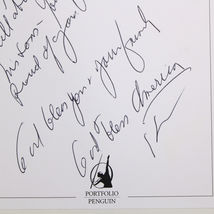 all about
his sons -
Proud of your
God bless you & your family
God bless America
PORTFOLIO
PENGUIN